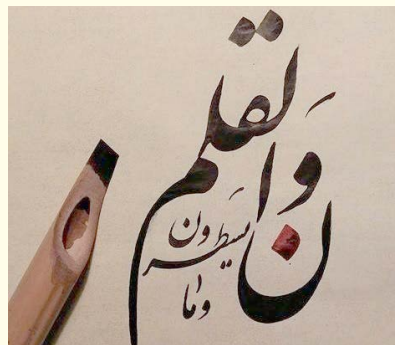 ن وَالقلم
وما يَسطرون